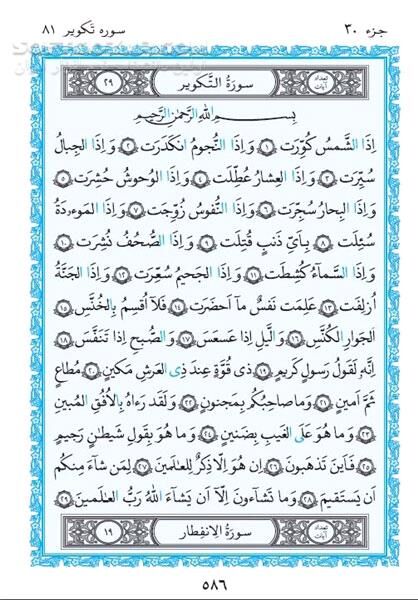 جزء ۳۰
سوره تَکویر ۸۱
تعداد آیات
سورَةُ التَّكوير
۲۹
بِسمِ اللهِ الرَّحمٰنِ الرَّحیمِ
اِذَا الشَّمسُ كُوِّرَت ۱ وَ اِذَا النُّجومُ انكَدَرَت ۲ وَ اِذَا الجِبالُ
سُيِّرَت ۳ وَ اِذَا العِشارُ عُطِّلَت ۴ وَ اِذَا الوُحوشُ حُشِرَت ۵
وَ اِذَا البِحارُ سُجِّرَت ۶ وَ اِذَا النُّفوسُ زُوِّجَت ۷ وَ اِذَا المَوءودَةُ
سُئِلَت ۸ بِاَيِّ ذَنبٍ قُتِلَت ۹ وَ اِذَا الصُّحُفُ نُشِرَت ۱۰
وَ اِذَا السَّماءُ كُشِطَت ۱۱ وَ اِذَا الجَحيمُ سُعِّرَت ۱۲ وَ اِذَا الجَنَّةُ
اُزلِفَت ۱۳ عَلِمَت نَفسٌ مآ اَحضَرَت ۱۴ فَلآ اُقسِمُ بِالخُنَّسِ ۱۵
اَلجَوارِ الكُنَّسِ ۱۶ وَ الَّيلِ اِذا عَسعَسَ ۱۷ وَ الصُّبحِ اِذا تَنَفَّسَ ۱۸
اِنَّهو لَقَولُ رَسولٍ كَريمٍ ۱۹ ذى قُوَّةٍ عِندَ ذِى العَرشِ مَكينٍ ۲۰ مُطاعٍ
ثَمَّ اَمينٍ ۲۱ وَ ما صاحِبُكُم بِمَجنونٍ ۲۲ وَ لَقَد رَءاهُ بِالاُفُقِ المُبينِ
۲۳ وَ ما هُوَ عَلَى الغَيبِ بِضَنينٍ ۲۴ وَ ما هُوَ بِقَولِ شَيطٰنٍ رَجيمٍ
۲۵ فَاَينَ تَذهَبونَ ۲۶ اِن هُوَ اِلّا ذِكرٌ لِلعٰلَمينَ ۲۷ لِمَن شآءَ مِنكُم
اَن يَستَقيمَ ۲۸ وَ ما تَشآءونَ اِلّآ اَن يَشآءَ اللهُ رَبُّ العٰلَمينَ ۲۹
تعداد آیات
سورَةُ الاِنفِطار
۱۹
۵۸۶